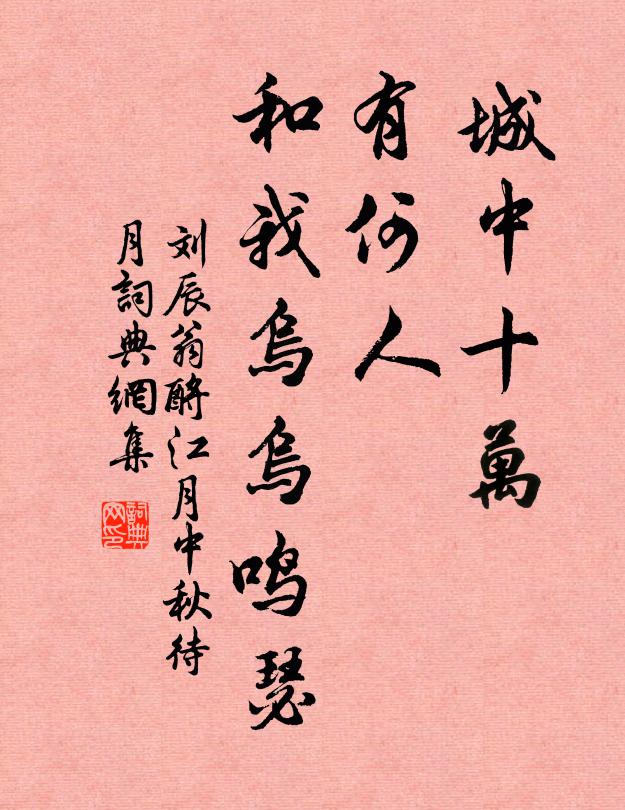 城中十萬
有何人
和我烏烏鳴瑟
刘辰翁酹江月中秋待
月詞典網集
詞典
网印